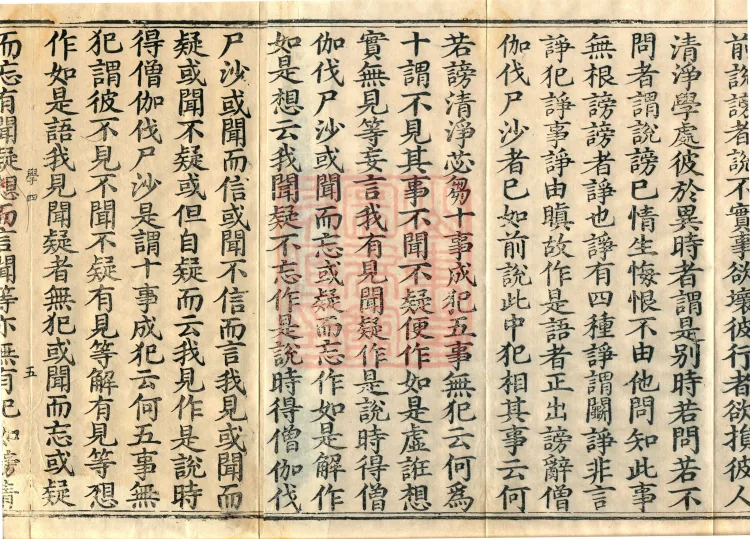 前說謗者說不實事欲壞彼行者欲損彼人
清淨學處彼於異時者謂是別時若問若不
問者謂說謗已情生悔恨不由他問知此事
無根謗謗者諍也諍有四種諍謂鬬諍非言
諍犯諍事諍由瞋故作是語者正出謗辭僧
伽伐尸沙者已如前說此中犯相其事云何
若謗清淨苾芻十事成犯五事無犯云何為
十謂不見其事不聞不疑便作如是虛誑想
實無見等妄言我有見聞疑作是說時得僧
伽伐尸沙或聞而忘或疑而忘作如是解作
如是想云我聞疑不忘作是說時得僧伽伐
尸沙或聞而信或聞不信而言我見或聞而
疑或聞不疑或但自疑而云我見作是說時
得僧伽伐尸沙是謂十事成犯云何五事無
犯謂彼不見不聞不疑有見等解有見等想
作如是語我見聞疑者無犯或聞而忘或疑
學四 五
而忘有聞疑想而言聞等亦無有犯如謗清